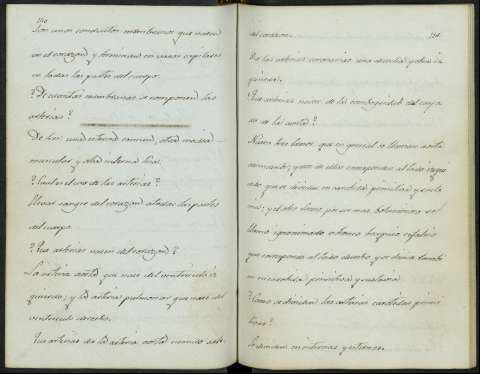 150
Son unos conductos membranosos que nacen
en el corazon, y terminan en vasos capilares
en todas las partes del cuerpo.
? De cuantas membranas se componen las
arterias?
De tres: una externa comun, otra media
muscular, y otra interna fina.
? Cual es el uso de las arterias?
Llevar sangre del corazon a todas las partes
del cuerpo.
? Que arterias nacen del corazon?
La arteria aorta que nace del ventriculo iz
quierdo; y la arteria pulmonar que nace del
ventriculo derecho.
Que arterias da la arteria aorta cuando sale
151
del corazon.
Da las arterias coronarias una derecha y otra iz
quierda.
? Que arterias nacen de la convexidad del caya
do de la aorta?
Nacen tres ramos que en general se llaman aorta
ascendente; y uno de ellos corresponde al lado izquier
do, que se divide en carotida primitiva y subcla
via; y el otro tramo por ser mas voluminoso se
llama ignominado o tronco braquio cefalico
que corresponde al lado derecho y se divide tambien
en carotida primitiva y subclavia.
? Como se dividen las arterias carotidas primi
tivas?
Se dividen en internas y externas.